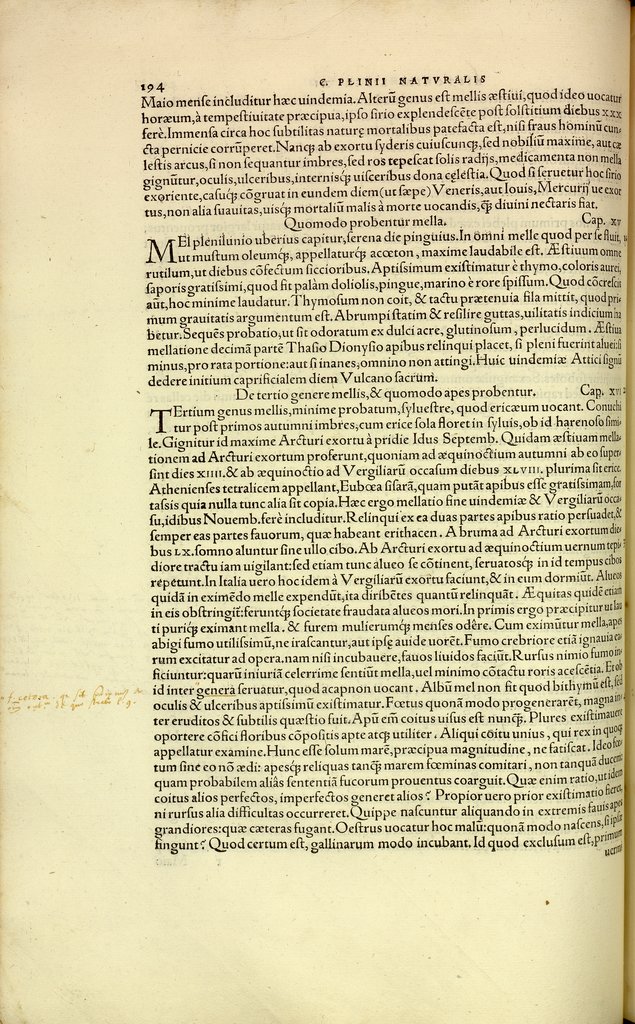 194
C. PLINII NATVRALIS
Maio mense includitur hæc uindemia. Alterũ genus est mellis æstiui, quod ideo uocatur
horæum, à tempestiuitate præcipua, ipso sirio explendescẽte post solstitium diebus xxx
ferè. Immensa circa hoc subtilitas naturę mortalibus patefacta est, nisi fraus hominũ cun-
cta pernicie corrũperet. Nanqꝫ ab exortu syderis cuiuscunqꝫ, sed nobiliũ maxime, aut cæ
lestis arcus, si non sequantur imbres, sed ros tepescat solis radijs, medicamenta non mella
gignũtur, oculis, ulceribus, internisqꝫ uisceribus dona cęlestia. Quod si seruetur hoc sirio
exoriente, casuqꝫ cõgruat in eundem diem (ut sæpe) Veneris, aut Iouis, Mercurij ue exor
tus, non alia suauitas, uisqꝫ mortaliũ malis à morte uocandis, q̃ꝫ diuini nectaris fiat.
Quomodo probentur mella. Cap. xv
MEl plenilunio uberius capitur, serena die pinguius. In omni melle quod per se fluit,
ut mustum oleumqꝫ, appellaturqꝫ acœton, maxime laudabile est. Æstiuum omne
rutilum, ut diebus cõfectum siccioribus. Aptissimum existimatur è thymo, coloris aurei,
saporis gratissimi, quod fit palàm doliolis, pingue, marino è rore spissum. Quod cõcrescit
aũt, hoc minime laudatur. Thymosum non coit, & tactu prætenuia fila mittit, quod pri-
mum grauitatis argumentum est. Abrumpi statim & resilire guttas, uilitatis indicium ha
betur. Sequẽs probatio, ut sit odoratum ex dulci acre, glutinosum, perlucidum. Æstiua
mellatione decimã partẽ Thasio Dionysio apibus relinqui placet, si pleni fuerint aluei: si
minus, pro rata portione: aut si inanes, omnino non attingi. Huic uindemiæ Attici signũ
dedere initium caprificialem diem Vulcano sacrum.
De tertio genere mellis, & quomodo apes probentur. Cap. xvi
TErtium genus mellis, minime probatum, syluestre, quod ericæum uocant. Conuehi
tur post primos autumni imbres, cum erice sola floret in syluis, ob id harenoso simi-
le. Gignitur id maxime Arcturi exortu à pridie Idus Septemb. Quidam æstiuam mella-
tionem ad Arcturi exortum proferunt, quoniam ad æquinoctium autumni ab eo super-
sint dies xiiii. & ab æquinoctio ad Vergiliarũ occasum diebus xlviii. plurima sit erice.
Athenienses tetralicem appellant, Eubœa sisarã, quam putãt apibus esse gratissimam, for
tassis quia nulla tunc alia sit copia. Hæc ergo mellatio fine uindemiæ & Vergiliarũ occa
su, idibus Nouemb. ferè includitur. Relinqui ex ea duas partes apibus ratio persuadet, &
semper eas partes fauorum, quæ habeant erithacen. A bruma ad Arcturi exortum die-
bus lx. somno aluntur sine ullo cibo. Ab Arcturi exortu ad æquinoctium uernum tepi-
diore tractu iam uigilant: sed etiam tunc alueo se cõtinent, seruatosqꝫ in id tempus cibos
repetunt. In Italia uero hoc idem à Vergiliarũ exortu faciunt, & in eum dormiũt. Alueos
quidã in eximẽdo melle expendũt, ita diribẽtes quantũ relinquãt. Æquitas quidẽ etiam
in eis obstringit: feruntqꝫ societate fraudata alueos mori. In primis ergo præcipitur ut lau
ti puriqꝫ eximant mella. & furem mulierumqꝫ menses odêre. Cum eximũtur mella, apes
abigi fumo utilissimũ, ne irascantur, aut ipsę auide uorẽt. Fumo crebriore etiã ignauia ea-
rum excitatur ad opera. nam nisi incubauere, fauos liuidos faciũt. Rursus nimio fumo in-
ficiuntur: quarũ iniuriã celerrime sentiũt mella, uel minimo cõtactu roris acescẽtia. Et ob
id inter genera seruatur, quod acapnon uocant. Albũ mel non fit quod bithymũ est, sed
oculis & ulceribus aptissimũ existimatur. Fœtus quonã modo progenerarẽt, magna in-
ter eruditos & subtilis quæstio fuit. Apũ em̃ coitus uisus est nunqꝫ. Plures existimauere
oportere cõfici floribus cõpositis apte atqꝫ utiliter. Aliqui coitu unius, qui rex in quoqꝫ
appellatur examine. Hunc esse solum marẽ, præcipua magnitudine, ne fatiscat. Ideo fœ-
tum sine eo nõ ædi: apesqꝫ reliquas tanqꝫ marem fœminas comitari, non tanquã ducem
quam probabilem aliâs sententiã fucorum prouentus coarguit. Quæ enim ratio, ut idem
coitus alios perfectos, imperfectos generet alios? Propior uero prior existimatio fieret,
ni rursus alia difficultas occurreret. Quippe nascuntur aliquando in extremis fauis apes
grandiores: quæ cæteras fugant. Oestrus uocatur hoc malũ: quonã modo nascens, si ipsæ
fingunt? Quod certum est, gallinarum modo incubant. Id quod exclusum est, primum
uermi